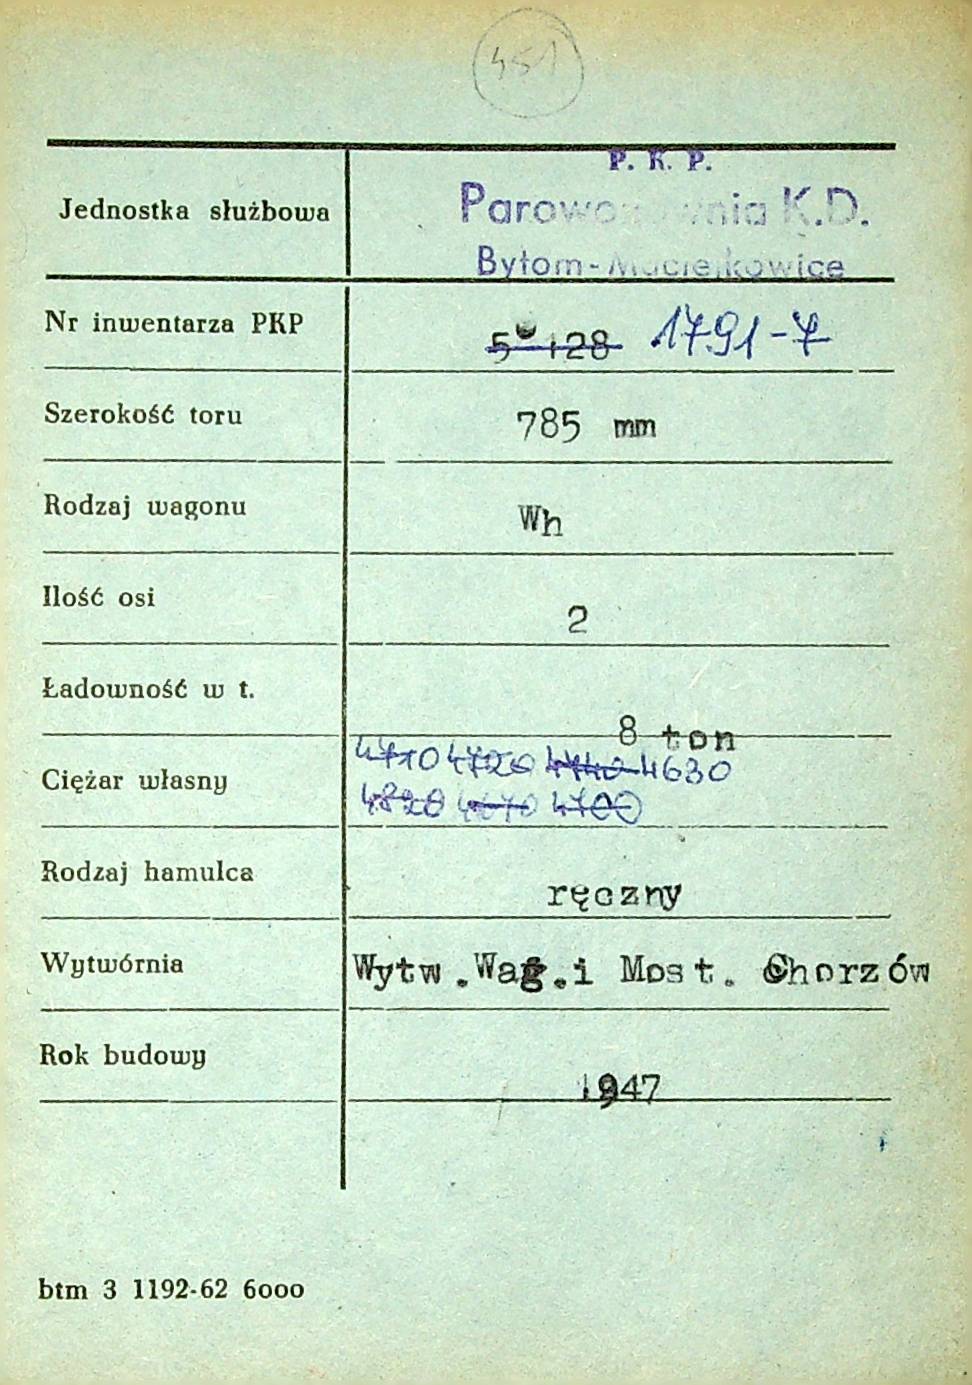 451
P. K. P.
Jednostka służbowa Parowozownia K.D.
Bytom-Maciejkowice
Nr inwentarza PKP 128 1791-7
Szerokość toru 785 mm
Rodzaj wagonu Wh
Ilość osi 2
Ładowność w t. 8 ton
4710 4720 4740 4630
Ciężar własny
4820 4670 4700
Rodzaj hamulca ręczny
Wytwórnia Wytw.Wag.i Most. Chorzów
Rok budowy 1947
btm 3 1192-62 6000